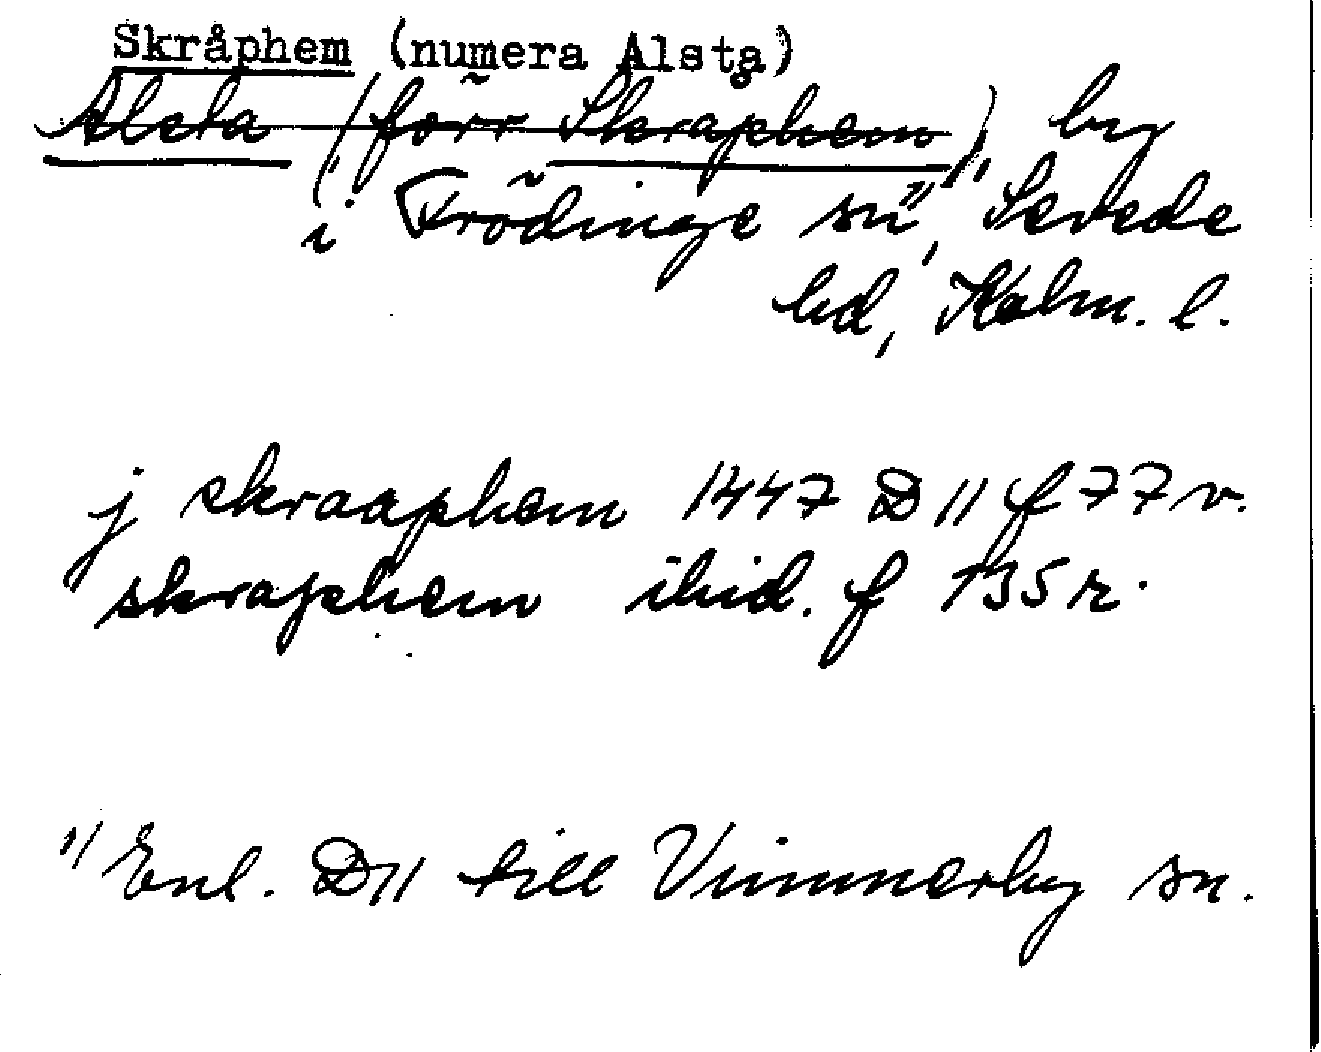 Skråphem (numera Alsta)
Alsta (förr Skråphem), by
i Frödinge sn¹⁾, Sevede
hd, Kalm. l.
j skraaphem 1447 D 11 f 77 v.
skraphem ibid. f 135 r.
1) Enl. D11 till Vimmerby sn.